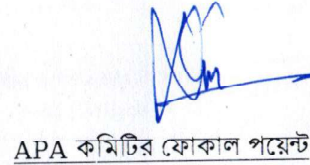 APA কমিটির ফোকাল পয়েন্ট